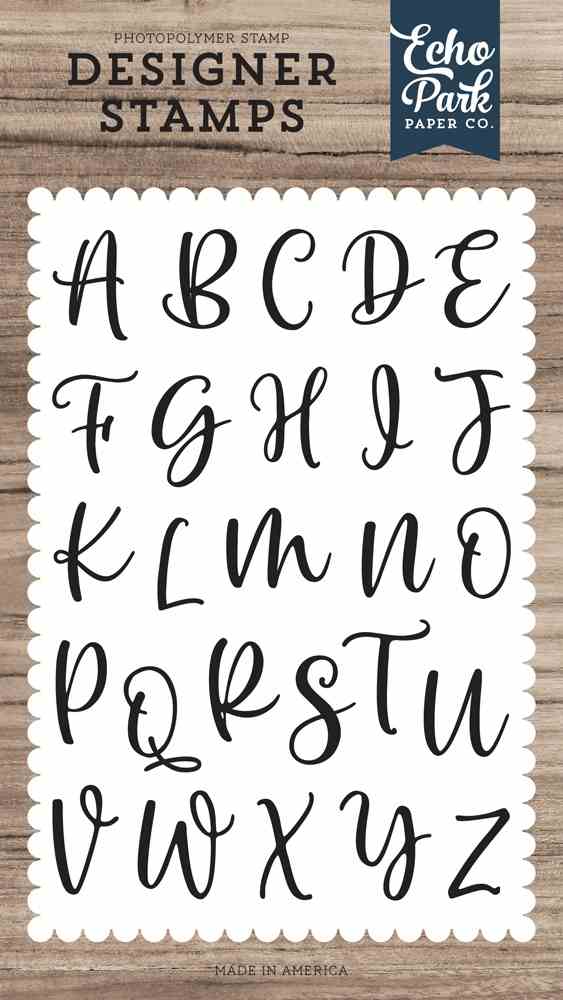 PHOTOPOLYMER STAMP
DESIGNER
STAMPS
Echo
Park
PAPER CO.
A B C D E
F G H I J
K L M N O
P Q R S T U
V W X Y Z
MADE IN AMERICA